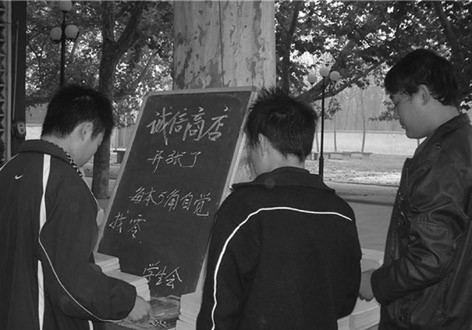 诚信商店
开张了
每本5角自觉
找零
学生会